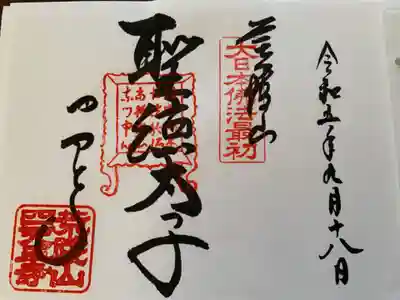 令和五年九月十八日
荒陵山
大日本佛法最初
聖徳太子
四天王寺
荒陵山
四天王寺